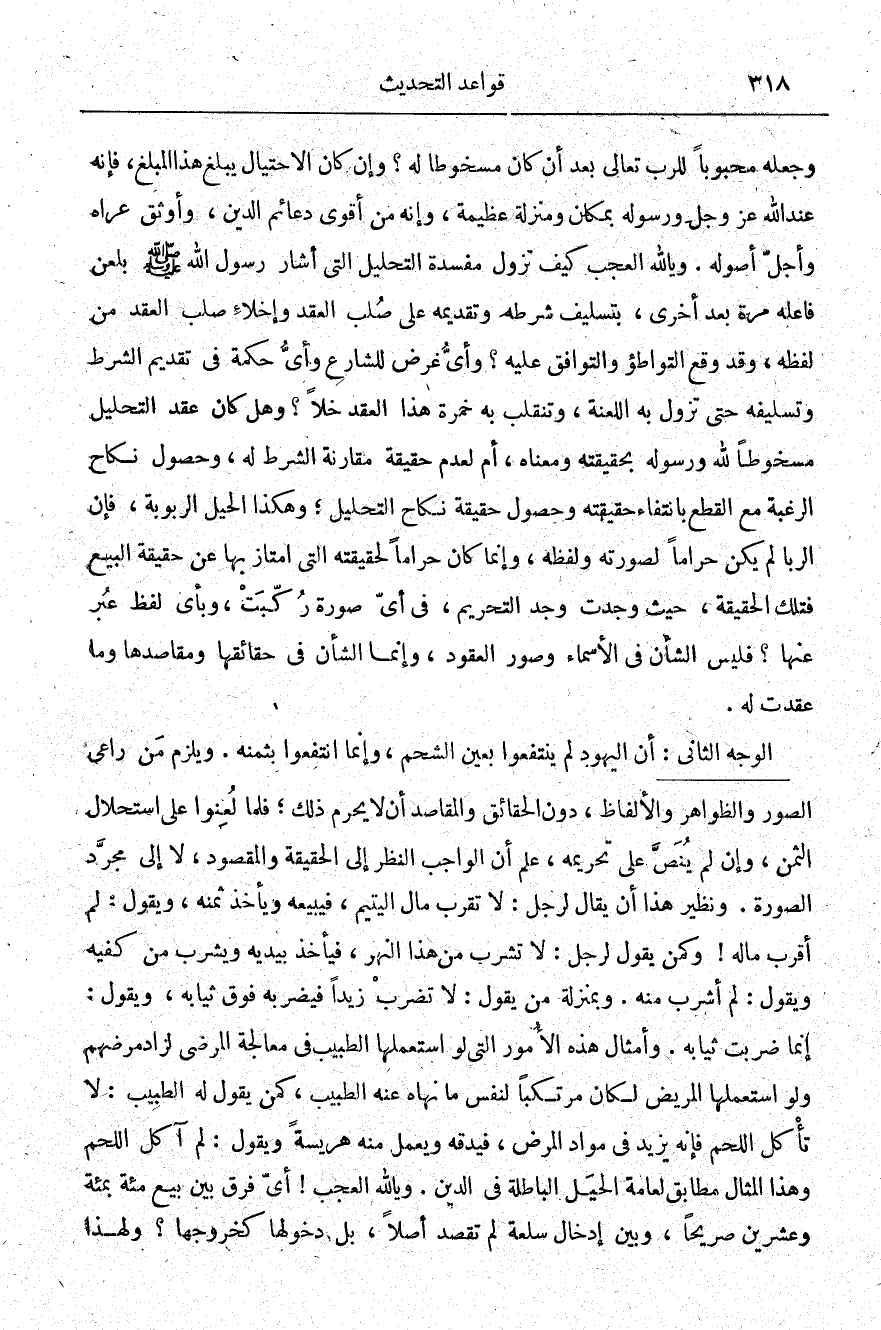 ٣١٨ قواعد التحديث
وجعله محبوباً للرب تعالى بعد أن كان مسخوطا له ؟ وإن كان الاحتيال يبلغ هذا المبلغ، فإنه
عند الله عز وجل ورسوله بمكان ومنزلة عظيمة ، وإنه من أقوى دعائم الدين ، وأوثق عراه
وأجلّ أصوله . ويالله العجب كيف تزول مفسدة التحليل التى أشار رسول الله ﷺ بلعن
فاعله مرة بعد أخرى ، بتسليف شرطه وتقديمه على صُلب العقد وإخلاءِ صلب العقد من
لفظه ، وقد وقع التواطؤ والتوافق عليه ؟ وأىُّ غرض للشارع وأىُّ حكمة فى تقديم الشرط
وتسليفه حتى تزول به اللعنة ، وتنقلب به خمرة هذا العقد خلاً ؟ وهل كان عقد التحليل
مسخوطاً لله ورسوله بحقيقته ومعناه ، أم لعدم حقيقة مقارنة الشرط له ، وحصول نكاح
الرغبة مع القطع بانتفاء حقيقته وحصول حقيقة نكاح التحليل ؛ وهكذا الحيل الربوبة ، فإن
الربا لم يكن حراماً لصورته ولفظه ، وإنما كان حراماً لحقيقته التى امتاز بها عن حقيقة البيع
فتلك الحقيقة ، حيث وجدت وجد التحريم ، فى أىّ صورة رُكّبَتْ ، وبأى لفظ عُبر
عنها ؟ فليس الشأن فى الأسماء وصور العقود ، وإنما الشأن فى حقائقها ومقاصدها وما
عقدت له .
الوجه الثانى : أن اليهود لم ينتفعوا بعين الشحم ، وإنما انتفعوا بثمنه . ويلزم مَن راعى
الصور والظواهر والألفاظ ، دون الحقائق والمقاصد أن لا يحرم ذلك ؛ فلما لُعِنوا على استحلال
الثمن ، وإن لم يُنَصَّ على تحريمه ، علم أن الواجب النظر إلى الحقيقة والمقصود ، لا إلى مجرَّد
الصورة . ونظير هذا أن يقال لرجل : لا تقرب مال اليتيم ، فيبيعه ويأخذ ثمنه ، ويقول : لم
أقرب ماله ! وكمن يقول لرجل : لا تشرب من هذا النهر ، فيأخذ بيديه ويشرب من كفيه
ويقول : لم أشرب منه . وبمنزلة من يقول : لا تضربْ زيداً فيضربه فوق ثيابه ، ويقول :
إنما ضربت ثيابه . وأمثال هذه الأمور التى لو استعملها الطبيب فى معالجة المرضى لزاد مرضهم
ولو استعملها المريض لكان مرتكباً لنفس ما نهاه عنه الطبيب ، كمن يقول له الطبيب : لا
تأكل اللحم فإنه يزيد فى مواد المرض ، فيدقه ويعمل منه هريسةً ويقول : لم آكل اللحم
وهذا المثال مطابق لعامة الحيَل الباطلة فى الدين . ويالله العجب ! أىّ فرق بين بيع مئة بمئة
وعشرين صريحاً ، وبين إدخال سلعة لم تقصد أصلاً ، بل دخولها كخروجها ؟ ولهذا